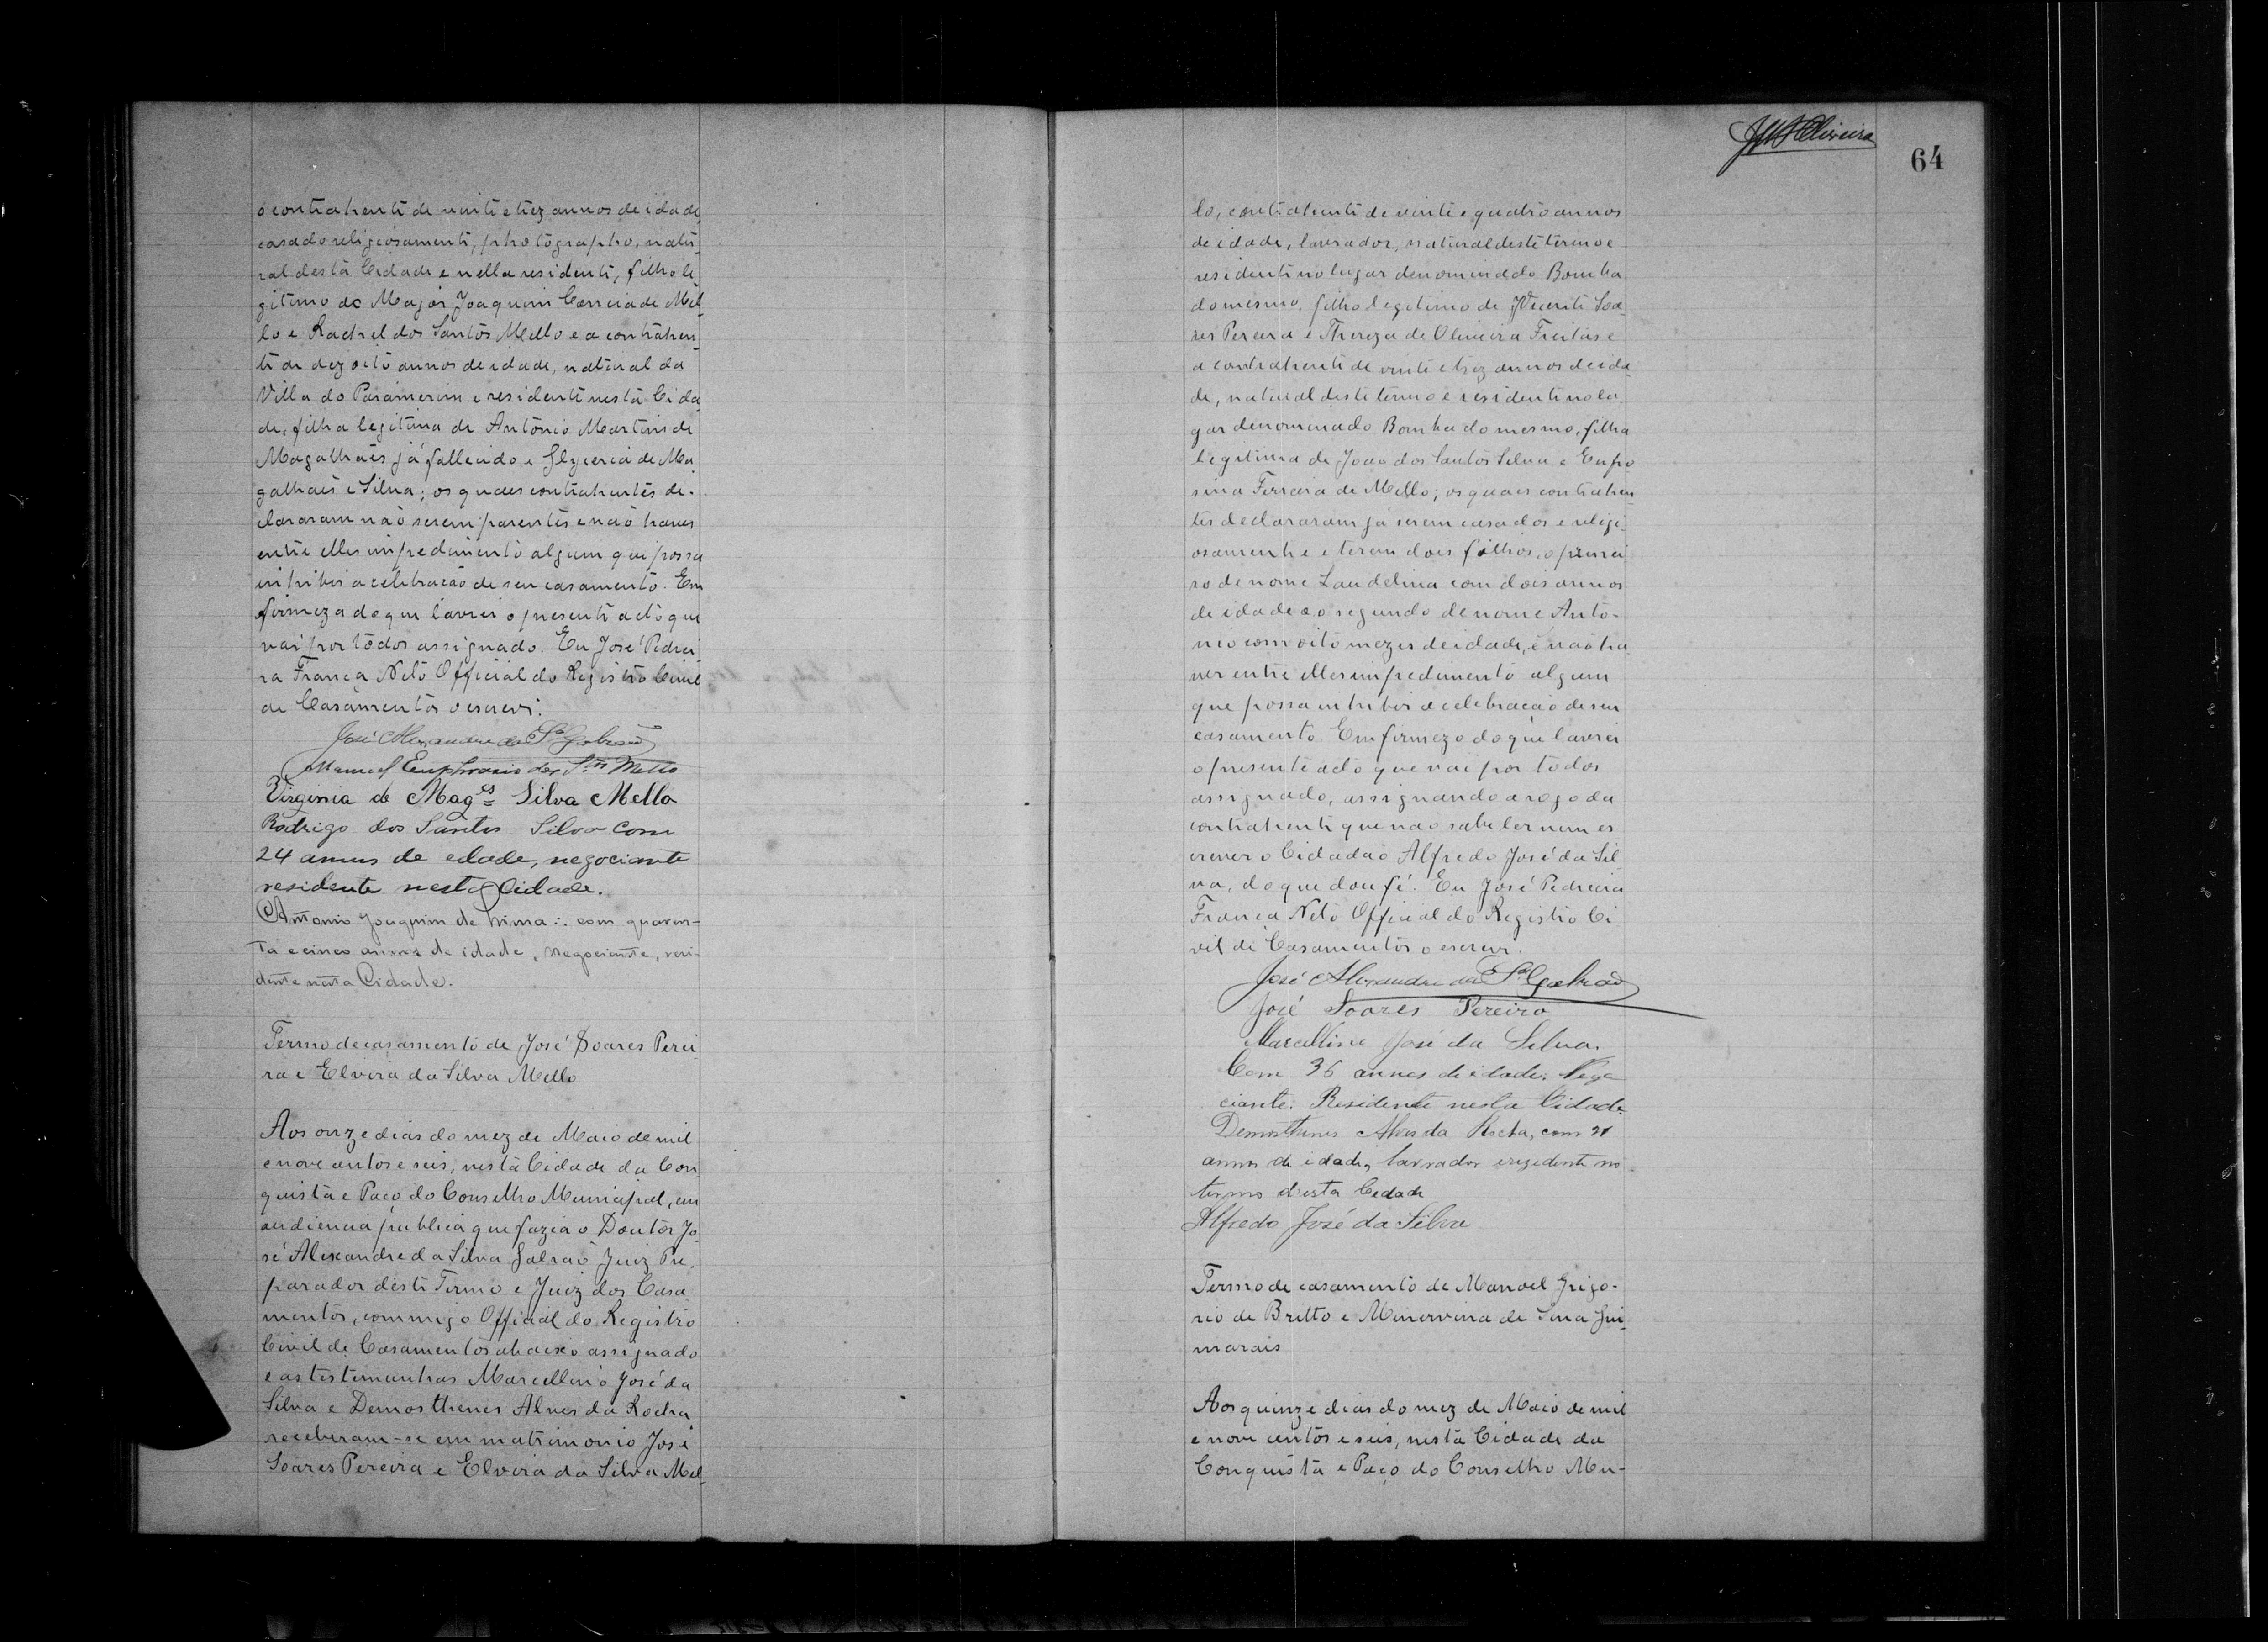 o contrahente de vinte e trez annos de idade,
casado religiosamente, photographo, natu-
ral desta Cidade e nella residente, filho le-
gitimo do Major Joaquim Correia de Mel-
lo e Rachel dos Santos Mello e a contrahen-
te de dezoito annos de idade, natural da
Villa do Paramerim e residente nesta Cida-
de, filha legitima de Antonio Martins de
Magalhães já fallecido e Glyceria de Ma-
galhaes e Silva; os quaes contrahentes de-
clararam não serem parentes e não haver
entre elles impedimento algum que possa
inhibir a celebracão de seu casamento. Em
firmeza do que lavrei o presente acto que
vai por todos assignado. Eu José Pedrei-
ra França Neto Official do Registro Civil
de Casamentos o escrevi.
José Alexandre da Sª Galrão
Manuel Euphrosio dos Stos Mello
Virginia de Mages Silva Mello
Rodrigo dos Santos Silva com
24 annos de edade, negociante
residente nesta Cidade.
Antonio Joaquim de Lima ∴ com quaren-
ta e cinco annos de idade, negociante, resi-
dente nesta Cidade.
Termo de casamento de José Soares Perei
ra e Elvira da Silva Mello
Aos onze dias do mez de Maio de mil
e nove centos e seis, nesta Cidade da Con
quista e Paço do Conselho Municipal, em
audiencia publica que fazia o Doutor Jo-
sé Alexandre da Silva Galrão Juiz Pre-
parador deste Termo e Juiz dos Casa
mentos, commigo Official do Registro
Civil de Casamentos abaixo assignado
e as testemunhas Marcellino José da
Silva e Demosthenes Alves da Rocha,
receberam-se em matrimonio José
Soares Pereira e Elvira da Silva Mel-
64
lo, contrahente de vinte e quatro annos
de idade, lavrador, natural deste termo e
residente no lugar denominado Bomba
do mesmo, filho legitimo de Vicente Soa-
res Pereira e Thereza de Oliveira Freitas e
a contrahente de vinte e trez annos de ida-
de, natural deste termo e residente no lu
gar denominado Bomba do mesmo, filha
legitima de João dos Santos Silva e Eufro
sina Ferreira de Mello; os quaes contrahen
tes declararam já serem casados e religi-
osamente e terem dois filhos, o primei
ro de nome Laudelina com dois annos
de idade e o segundo de nome Anto-
nio com oito mezes de idade, e não ha-
ver entre elles impedimento algum
que possa inhibir a celebração de seu
casamento. Em firmeza do que lavrei
o presente acto que vai por todos
assignado, assignando a rogo da
contrahente que nao sabe ler nem es
crever o Cidadão Alfredo José da Sil
va, do que dou fé. Eu José Pedreira
França Neto Official do Registro Ci
vil de Casamentos o escrevi.
José Alexandre da Sª Galrão
José Soares Pereira
Marcellino José da Silva.
Com 36 annos de idade. Nego
ciante. Residente nesta Cidade.
Demosthenes Alves da Rocha, com 21
annos de idade, lavrador e rezidente no
termo desta Cidade
Alfredo José da Silva
Termo de casamento de Manoel Grigo-
rio de Britto e Minervina de Gui-
marais
Aos quinze dias do mez de Maio de mil
e nove centos e seis, nesta Cidade da
Conquista e Paço do Conselho Mu-